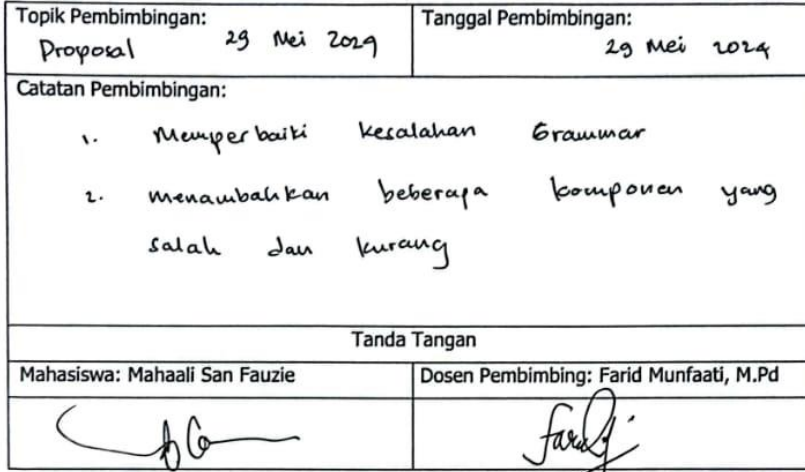 Topik Pembimbingan:
Proposal 29 Mei 2024
Tanggal Pembimbingan:
29 Mei 2024
Catatan Pembimbingan:
1. Memperbaiki kesalahan Grammar
2. menambahkan beberapa komponen yang
salah dan kurang
Tanda Tangan
Mahasiswa: Mahaali San Fauzie
Dosen Pembimbing: Farid Munfaati, M.Pd